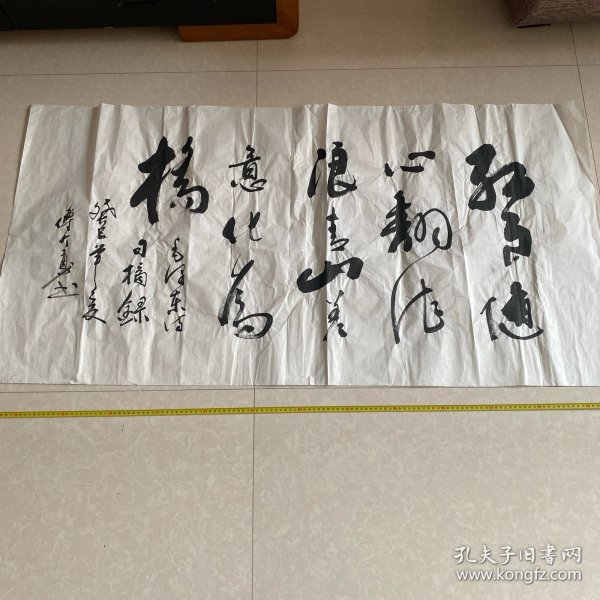 紅雨随
心翻作
浪青山着
意化為
橋
毛澤東诗
句摘錄
癸巳夏
孔夫子旧书网
www.kongfz.com